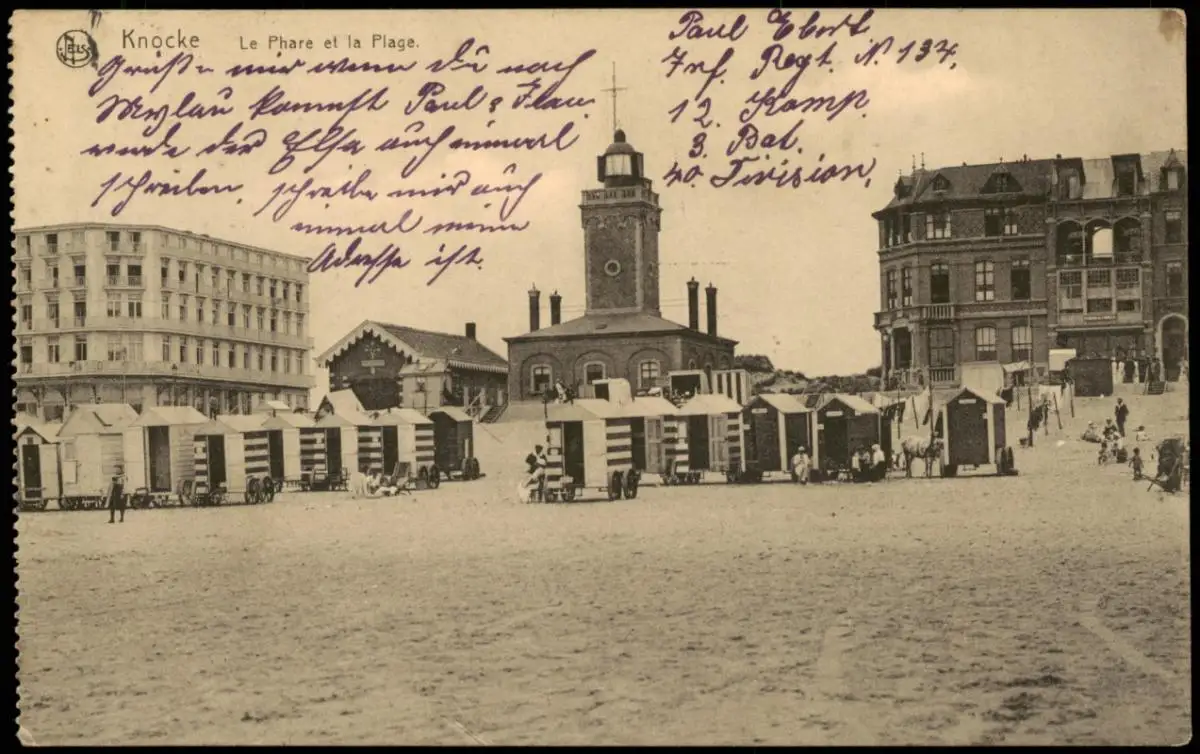 NELS
Knocke Le Phare et la Plage.
Grüße mir wenn du nach
Mylau kommst Paul's Frau.
werde der Elsa auch einmal
schreiben. schreibe mir auch
einmal wenn
Adresse ist.
Paul Ebert
Inf. Regt. N. 134.
12. Komp.
3. Bat.
40. Division.